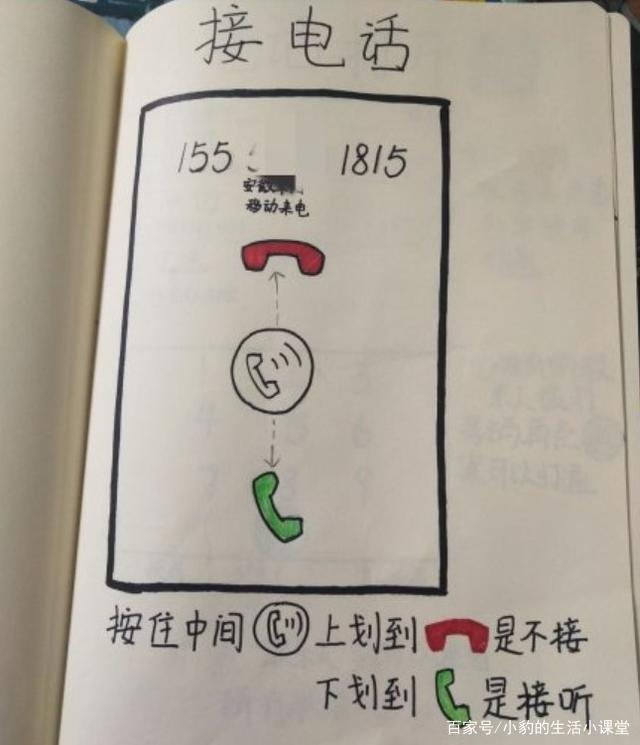 接电话
155 1815
安徽
移动来电
按住中间 上划到 是不接
下划到 是接听
百家号/小豹的生活小课堂